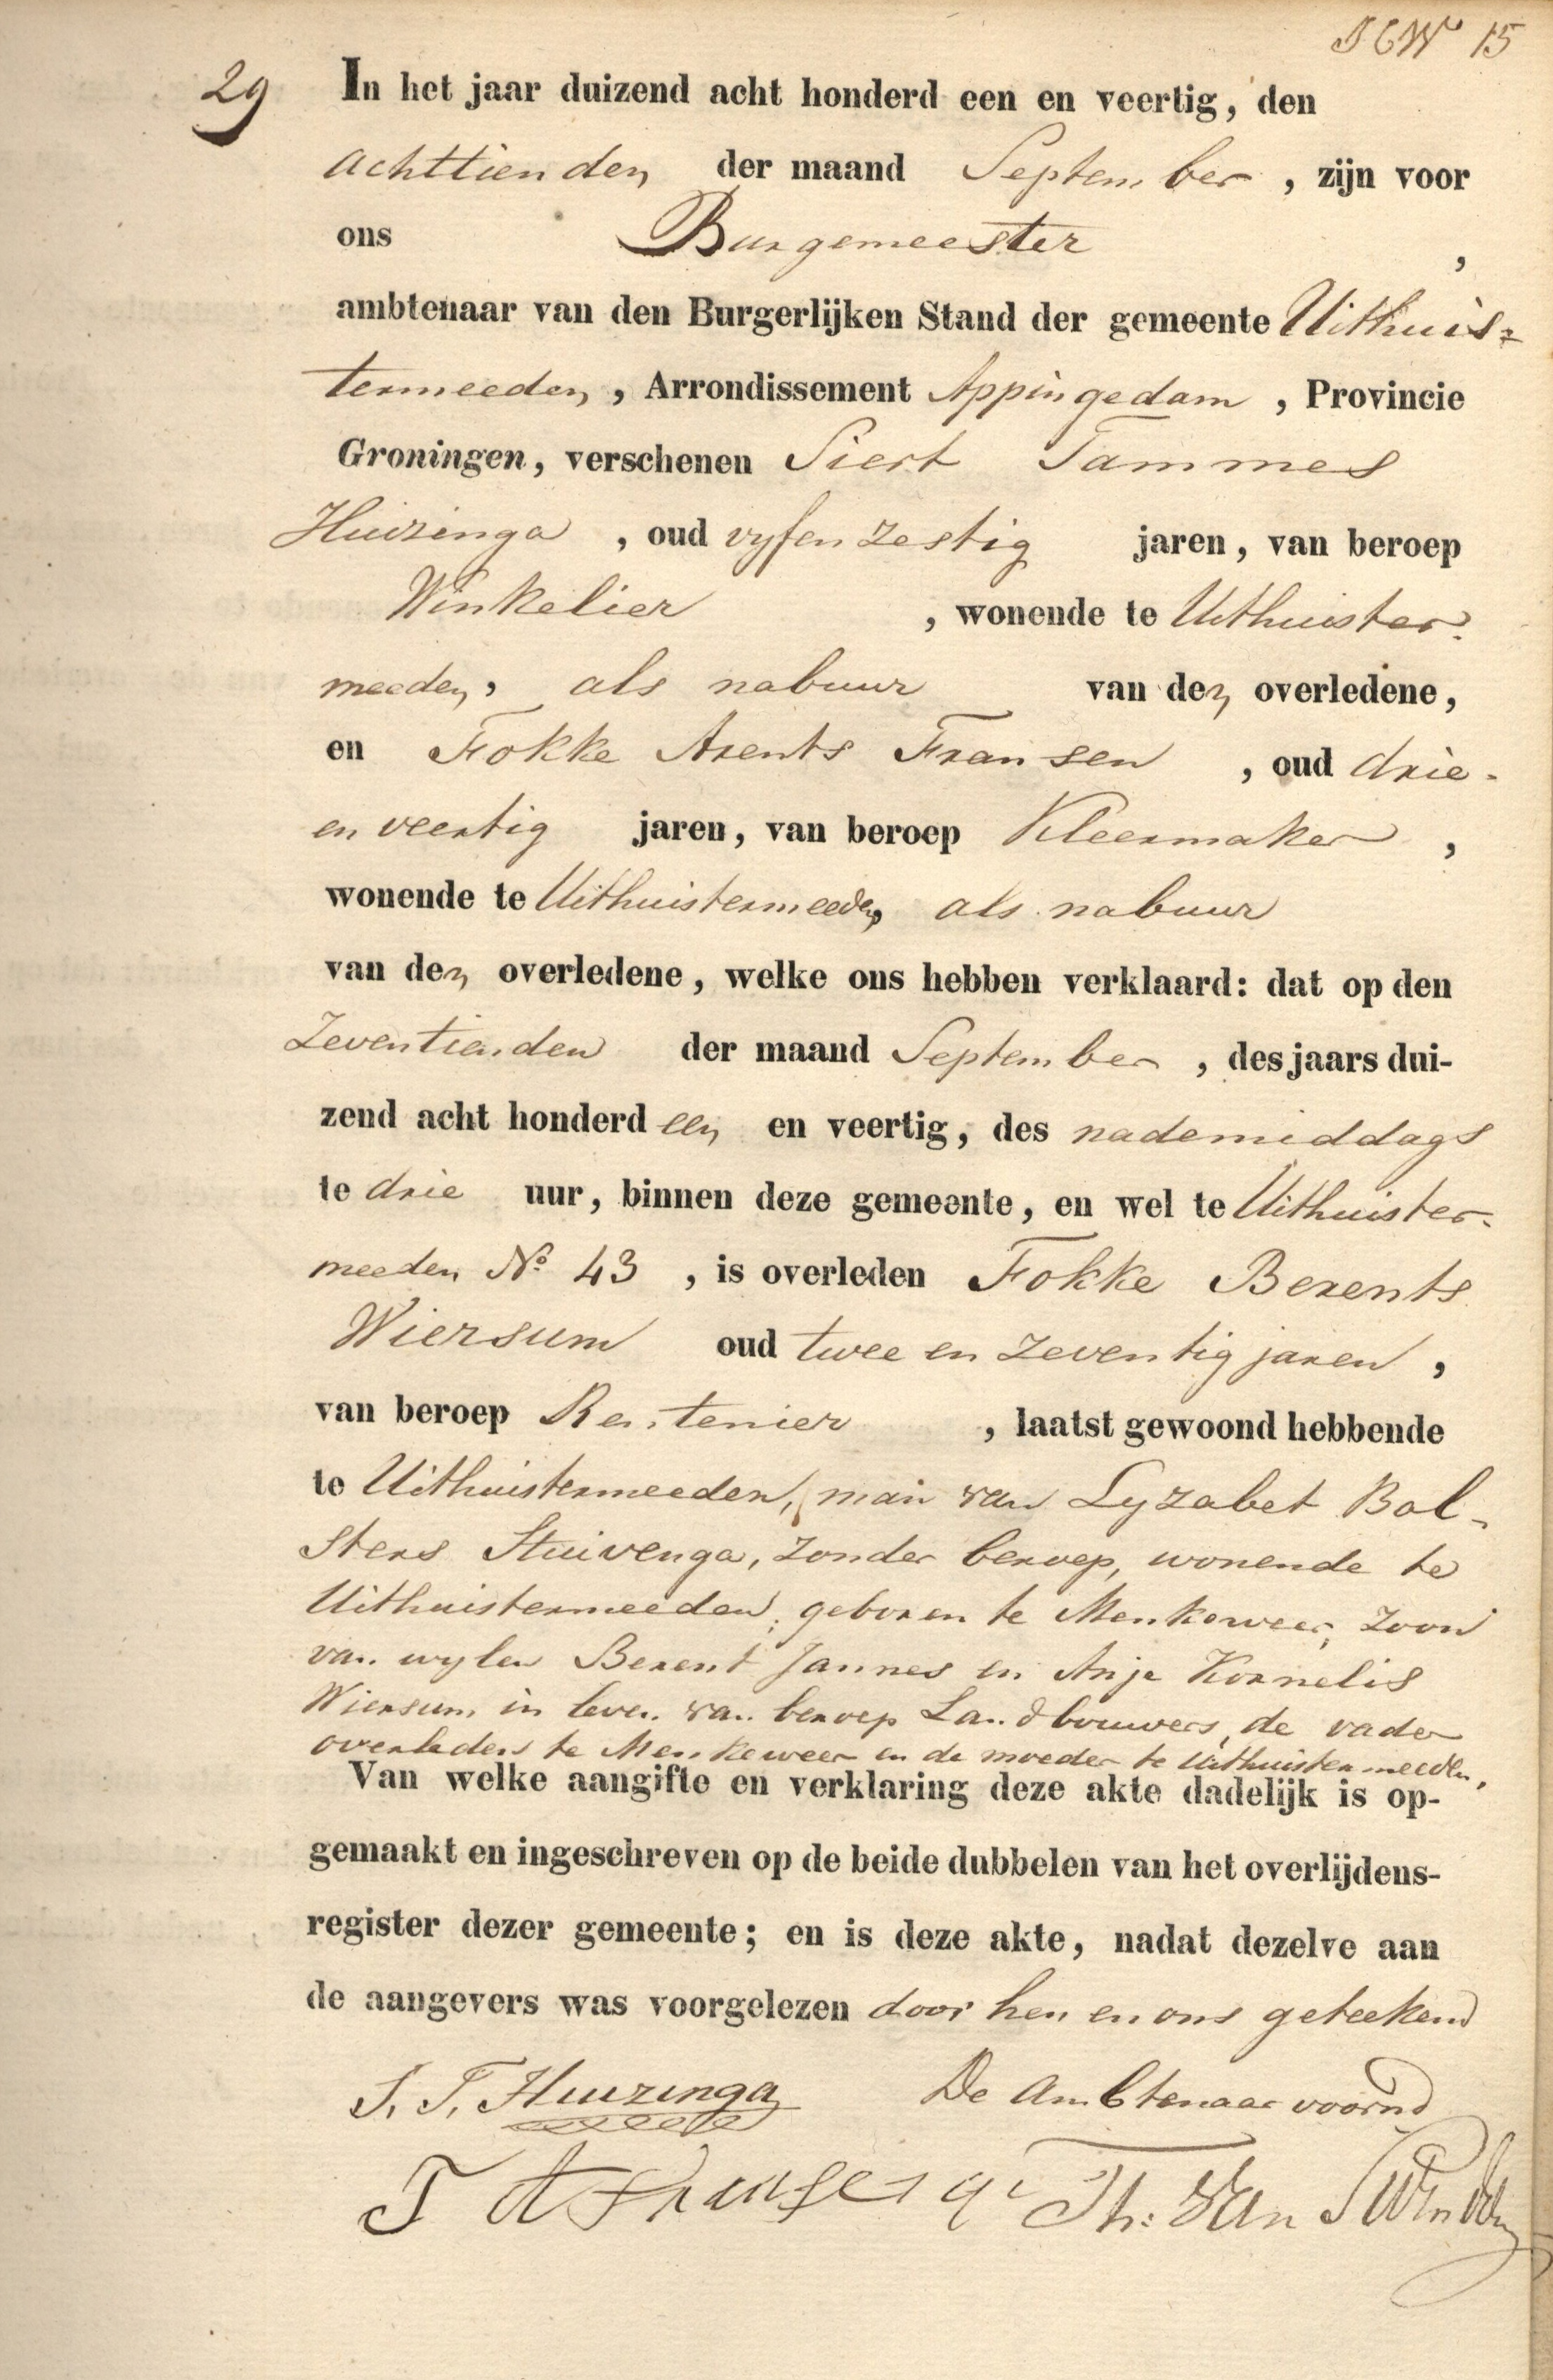 15
29 In het jaar duizend acht honderd een en veertig, den
achttienden der maand September, zijn voor
ons Burgemeester,
ambtenaar van den Burgerlijken Stand der gemeente Uithuis-
termeeden, Arrondissement Appingedam, Provincie
Groningen, verschenen Siert Tammes
Huizinga, oud vyfenzestig jaren, van beroep
Winkelier, wonende te Uithuister-
meeden, als nabuur van den overledene,
en Fokke Arents Fransen, oud drie-
en veertig jaren, van beroep Kleermaker,
wonende te Uithuistermeeden, als nabuur
van den overledene, welke ons hebben verklaard: dat op den
Zeventienden der maand September, des jaars dui-
zend acht honderd een en veertig, des nademiddags
te drie uur, binnen deze gemeente, en wel te Uithuister-
meeden No. 43, is overleden Fokke Berents
Wiersum oud twee en zeventig jaren,
van beroep Rentenier, laatst gewoond hebbende
te Uithuistermeeden, man van Lyzabet Bol-
sters Stuivenga, zonder beroep, wonende te
Uithuistermeeden, geboren te Menkeweer, zoon
van wylen Berent Jannes en Anje Kornelis
Wiersum in leven van beroep Landbouwers, de vader
overleden te Menkeweer en de moeder te Uithuistermeeden,
Van welke aangifte en verklaring deze akte dadelijk is op-
gemaakt en ingeschreven op de beide dubbelen van het overlijdens-
register dezer gemeente; en is deze akte, nadat dezelve aan
de aangevers was voorgelezen door hen en ons geteekend
S. T. Huizinga De Ambtenaar voornd
F A Fransen Th: Van Swinderen